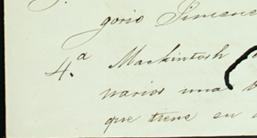 gorio Simene
4.ª Mackintosh
varios una
que tiene en